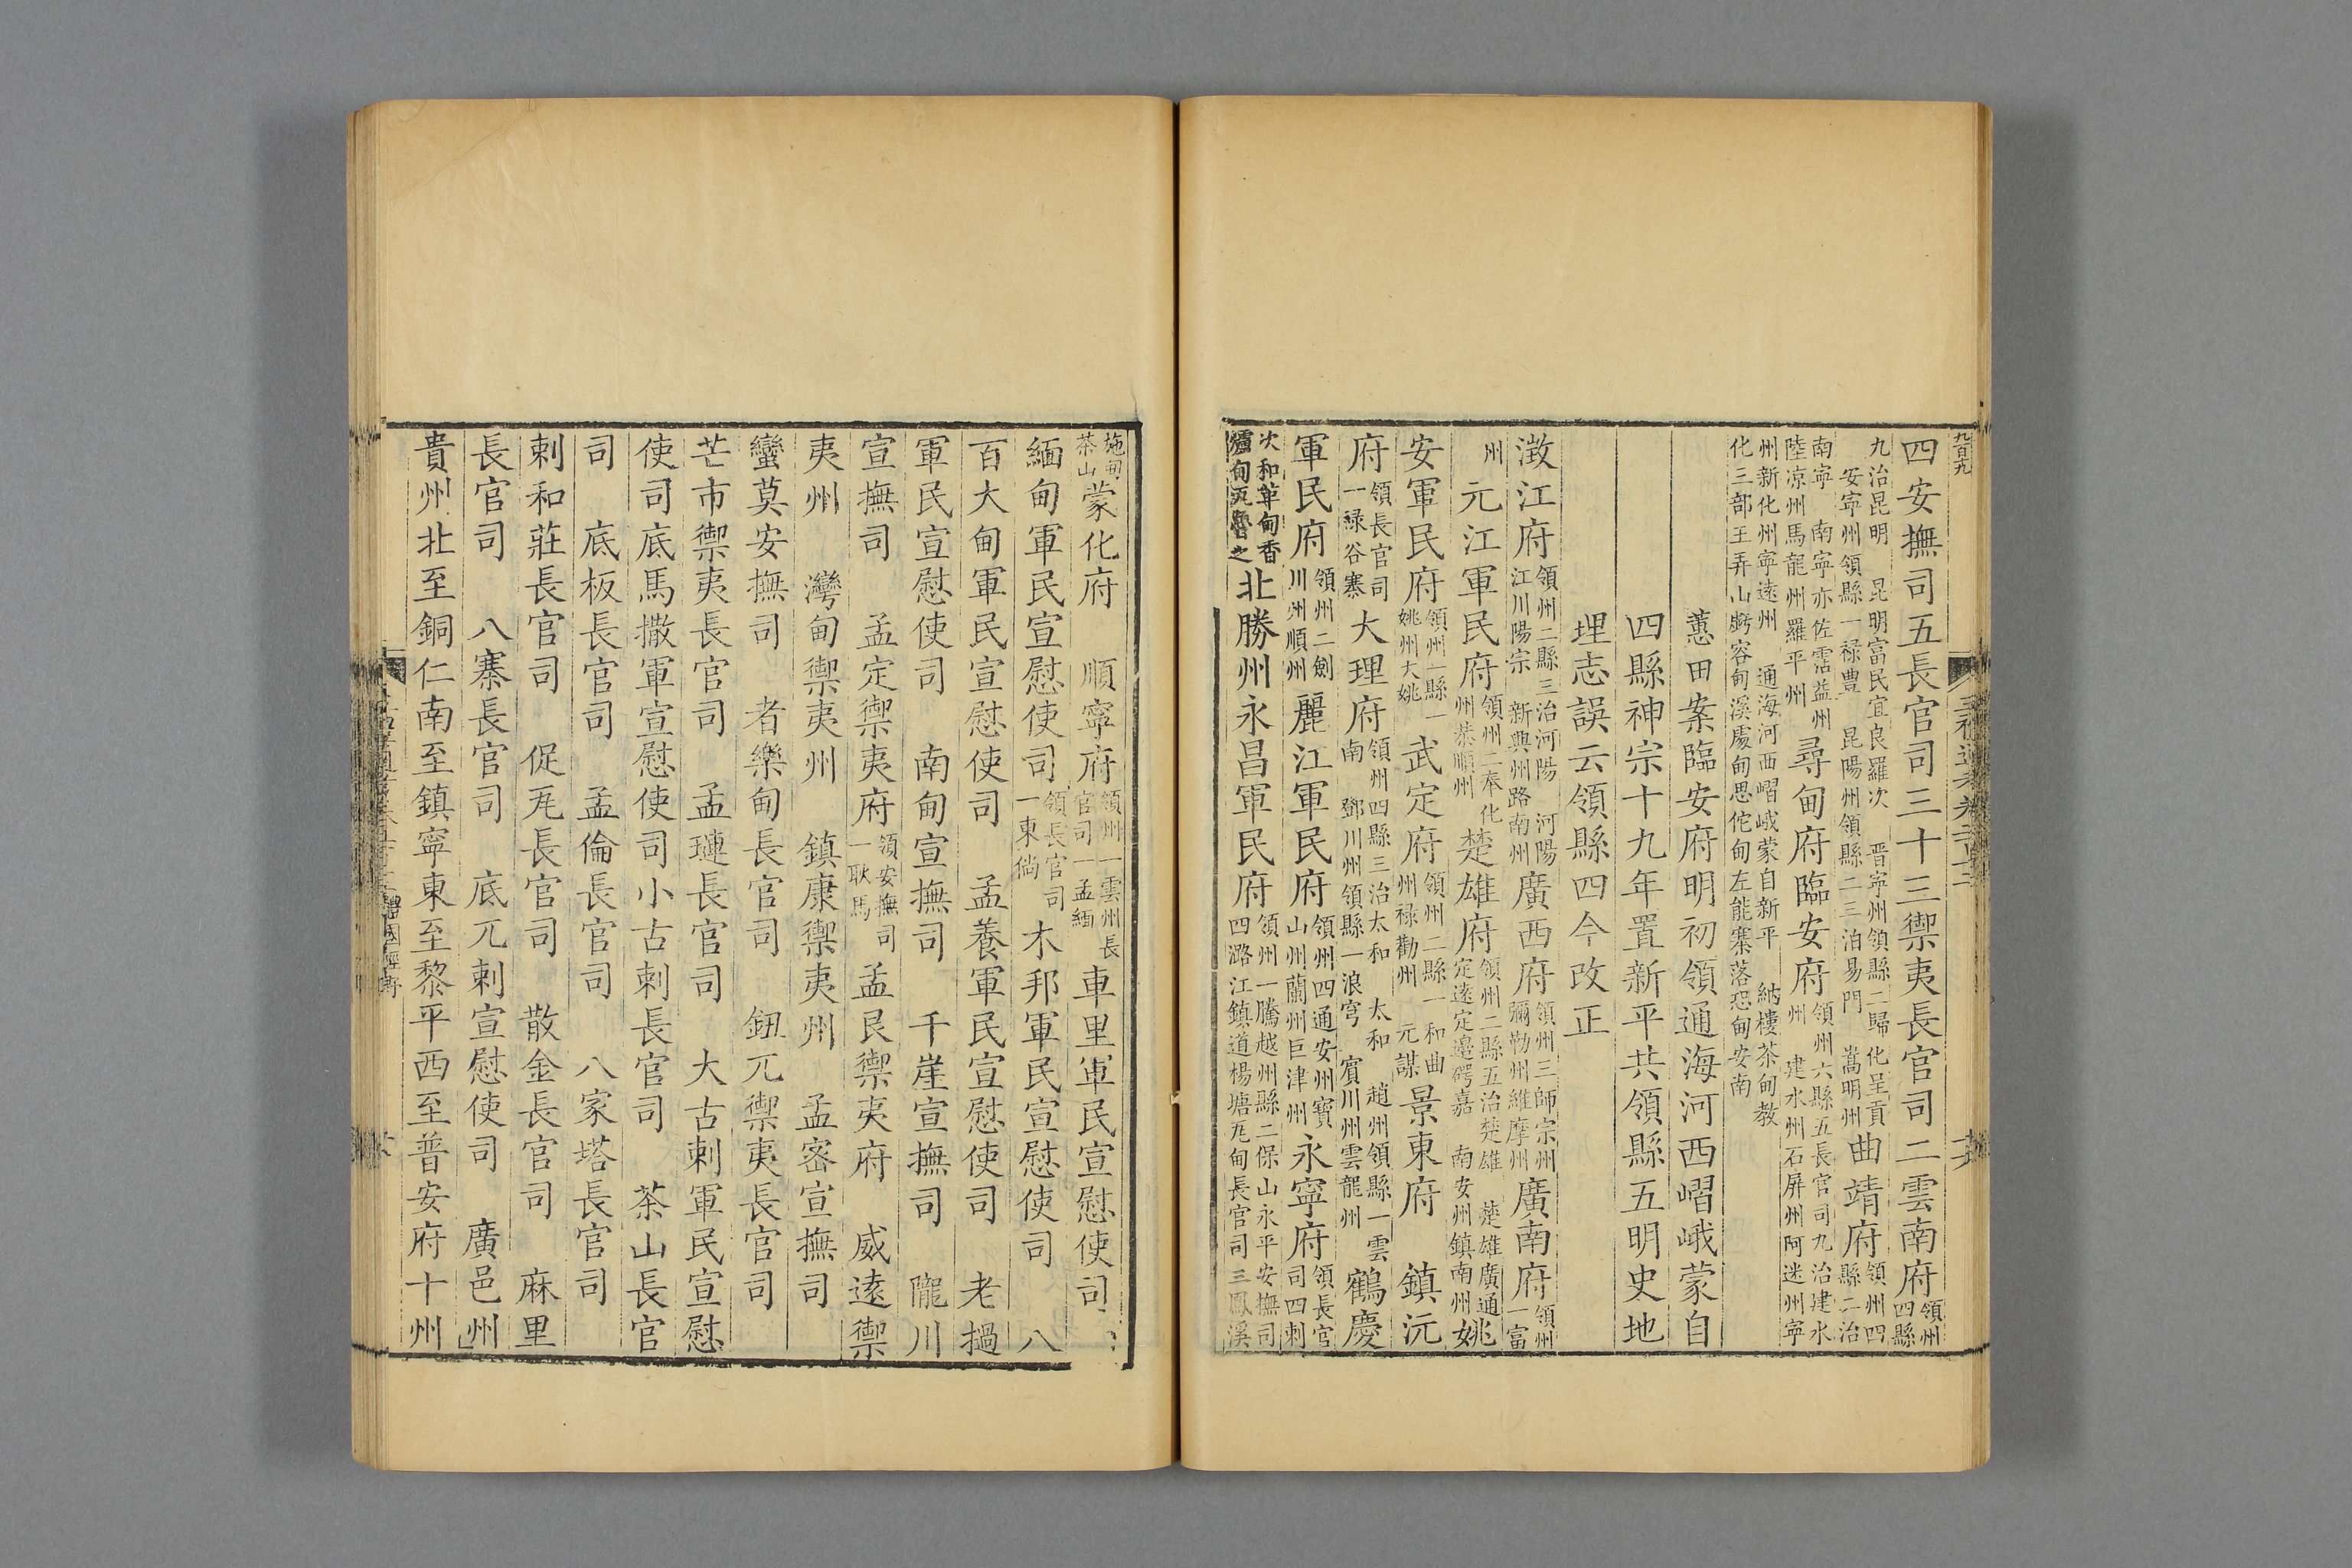 四安撫司五長官司三十三禦夷長官司二雲南府領州四縣
九治昆明 昆明富民宜良羅次 晋寧州領縣二歸化呈貢
安寧州領縣一禄豊 昆陽州領縣二三泊易門 嵩明州曲靖府領州四縣二治
南寧 南寧亦佐霑益州
陸凉州馬龍州羅平州尋甸府臨安府領州六縣五長官司九治建水州 建水州石屏州阿迷州寧
州新化州寧遠州 通海河西嶍峨蒙自新平 納樓茶甸教
化三部王弄山虧容甸溪處甸思佗甸左能寨落恐甸安南
蕙田案臨安府明初領通海河西嶍峨蒙自
四縣神宗十九年置新平共領縣五明史地
理志誤云領縣四今改正
澂江府領州二縣三治河陽 河陽江川陽宗 新興州路南州廣西府領州三師宗州彌勒州維摩州廣南府領州一富
州元江軍民府領州二奉化州恭順州楚雄府領州二縣五治楚雄 楚雄廣通定遠定邊碍嘉 南安州鎮南州姚
安軍民府領州一縣一姚州大姚武定府領州二縣一和曲州禄勸州 元謀景東府 鎮沅
府領長官司一禄谷寨大理府領州四縣三治太和 太和 趙州領縣一雲南 鄧川州領縣一浪穹 賓川州雲龍州鶴慶
軍民府領州二劍川州順州麗江軍民府領州四通安州寶山州蘭州巨津州永寧府領長官司四剌
次和革甸香
羅甸瓦魯之北勝州永昌軍民府領州一騰越州縣二保山永平安撫司四潞江鎮道楊塘瓦甸長官司三鳳溪
施甸茶山蒙化府 順寧府領州一雲州長官司一孟緬車里軍民宣慰使司
緬甸軍民宣慰使司領長官司一東倘木邦軍民宣慰使司 八
百大甸軍民宣慰使司 孟養軍民宣慰使司 老撾
軍民宣慰使司 南甸宣撫司 千崖宣撫司 隴川
宣撫司 孟定禦夷府領安撫司一耿馬孟艮禦夷府 威遠禦
夷州 灣甸禦夷州 鎮康禦夷州 孟密宣撫司
蠻莫安撫司 者樂甸長官司 鈕兀禦夷長官司
芒市禦夷長官司 孟璉長官司 大古剌軍民宣慰
使司底馬撒軍宣慰使司小古剌長官司 茶山長官
司 底板長官司 孟倫長官司 八家塔長官司
剌和莊長官司 促瓦長官司 散金長官司 麻里
長官司 八寨長官司 底兀剌宣慰使司 廣邑州
貴州北至銅仁南至鎮寧東至黎平西至普安府十州